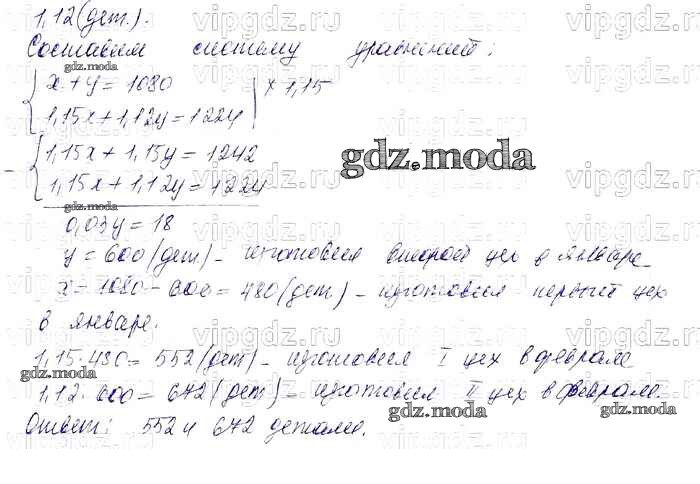 1,12 (дет.).
Составим систему уравнений:
x + y = 1080 | × 1,15
1,15x + 1,12y = 1224
1,15x + 1,15y = 1242
- 1,15x + 1,12y = 1224
0,03y = 18
y = 600 (дет) - изготовил второй цех в январе
x = 1080 - 600 = 480 (дет) - изготовил первый цех
в январе.
1,15 · 480 = 552 (дет) - изготовил I цех в феврале
1,12 · 600 = 672 (дет) - изготовил II цех в феврале.
Ответ: 552 и 672 детали.
gdz.moda
gdz.moda
gdz.moda
gdz.moda
gdz.moda
gdz.moda
gdz.moda
vipgdz.ru